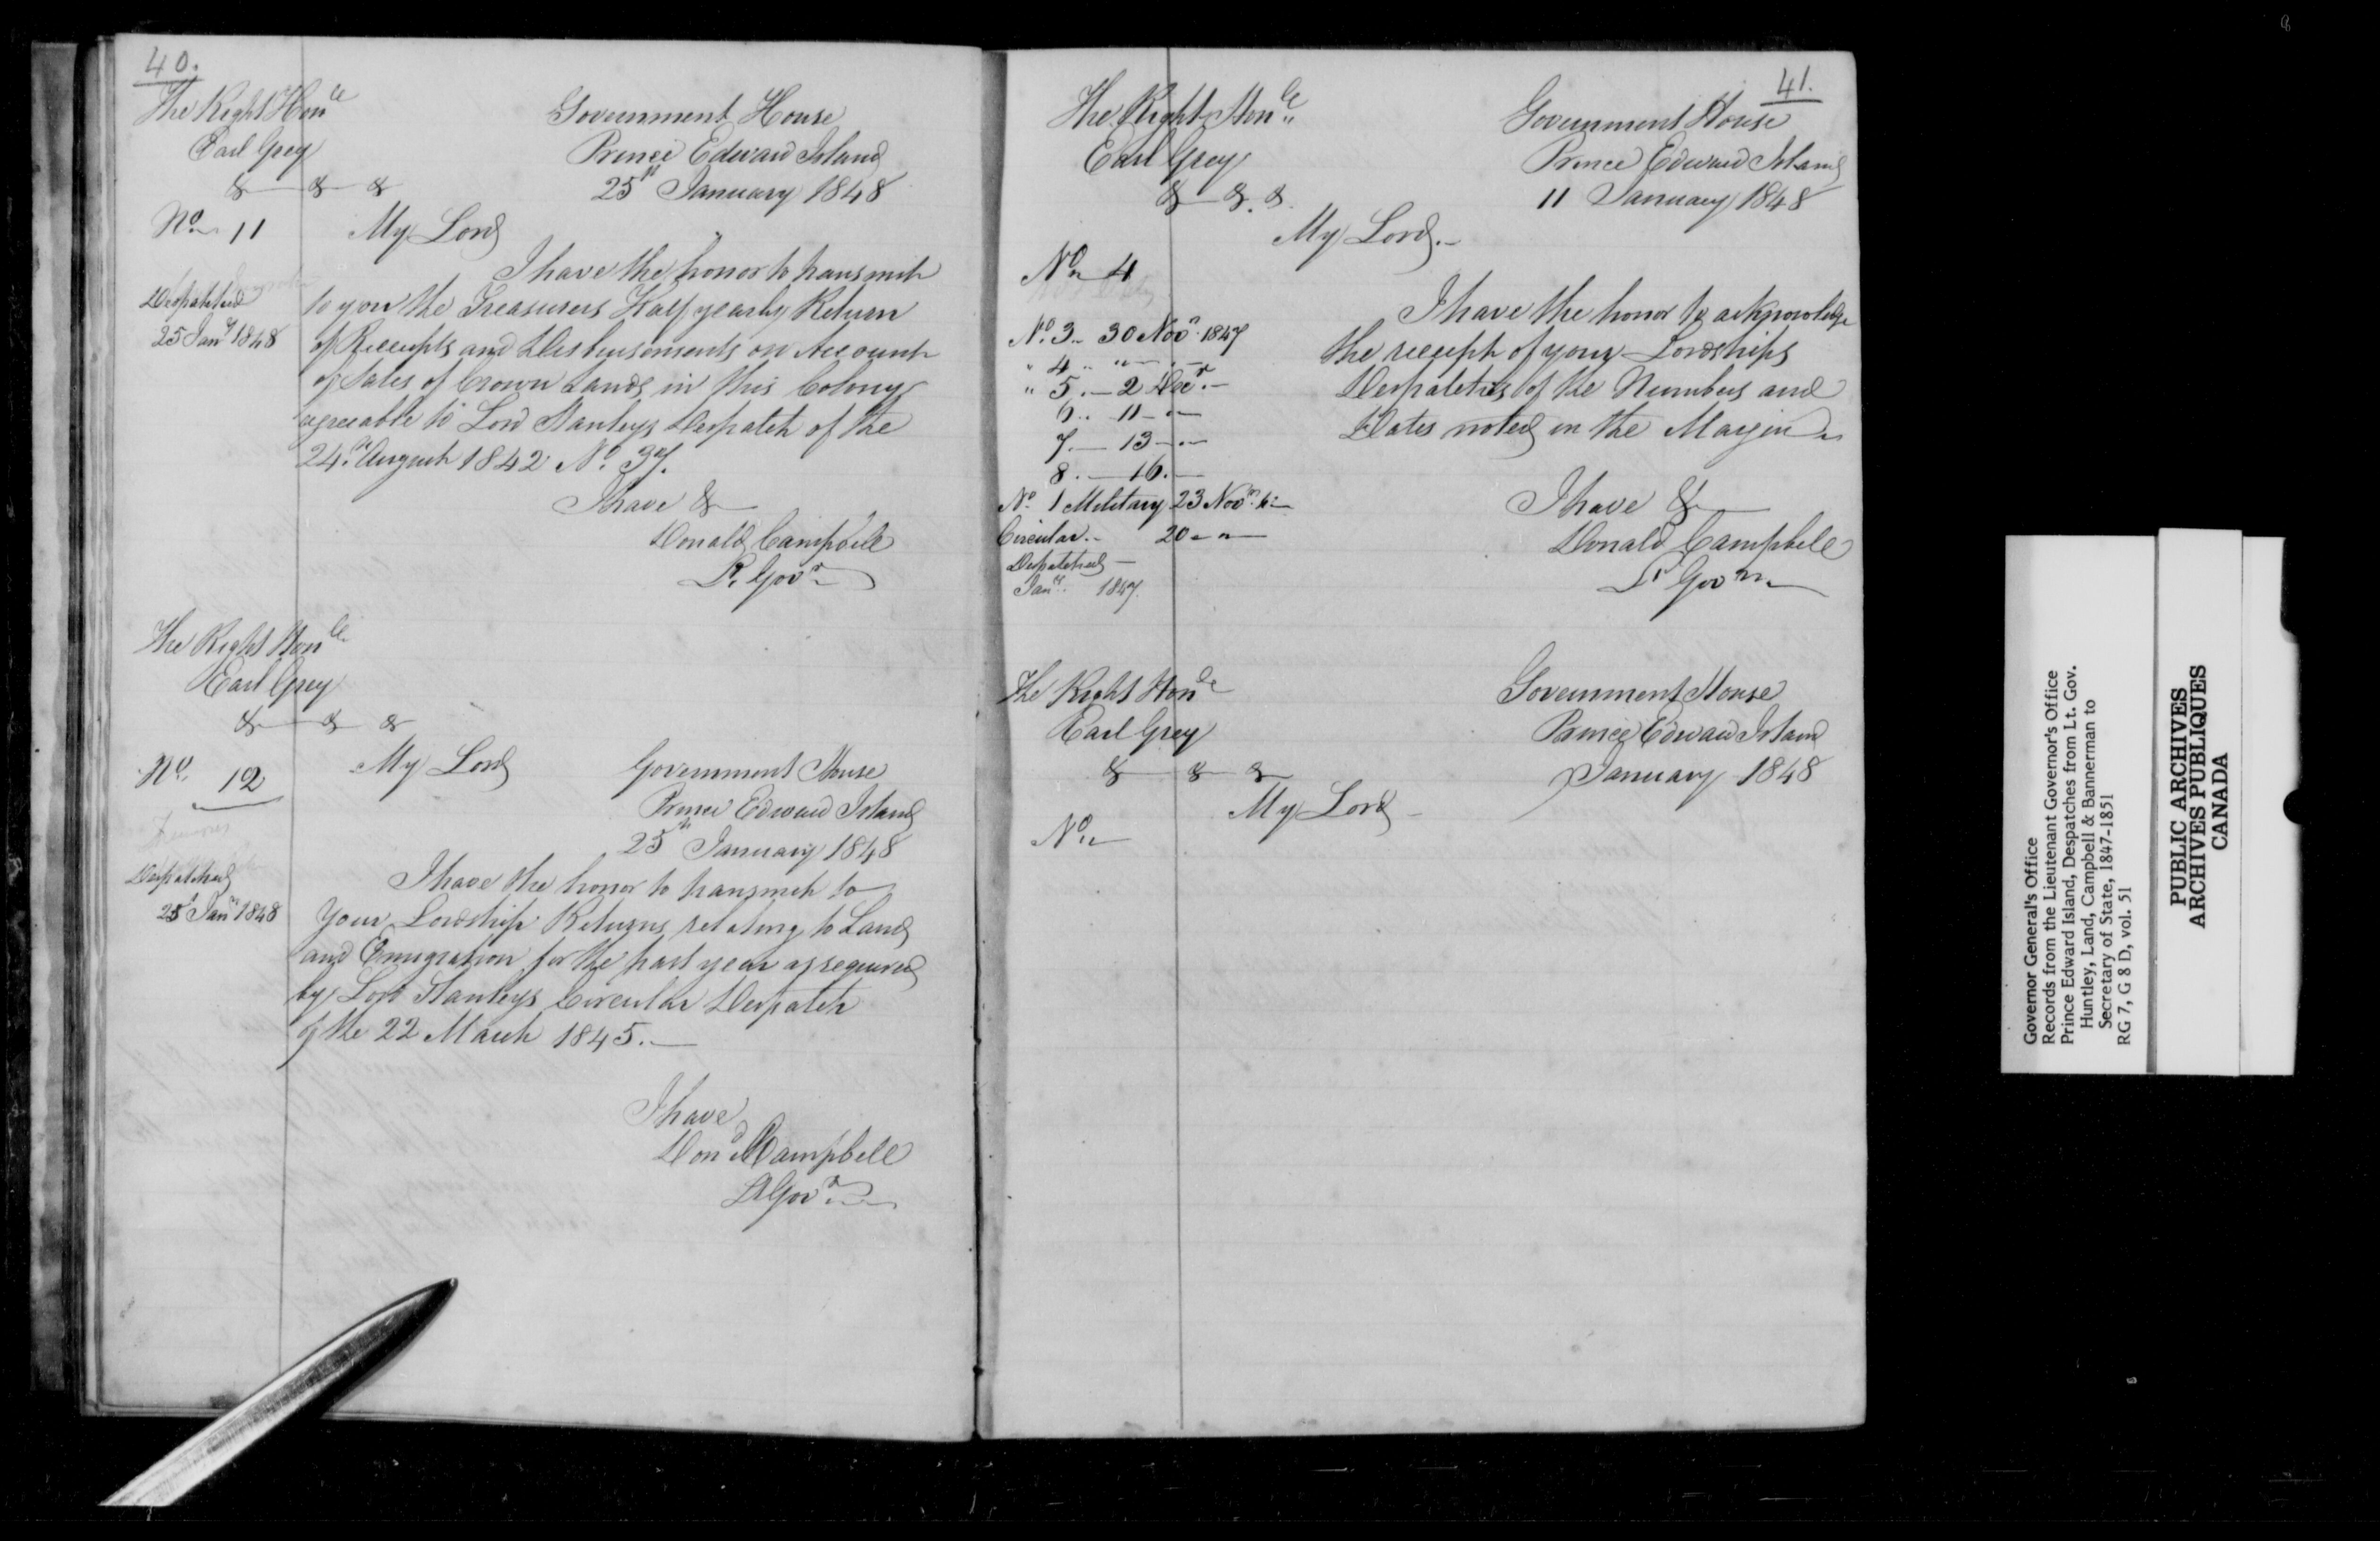 40.
The Right Honle
Earl Grey
& & &
Government House
Prince Edward Island
25th January 1848
No 11
My Lord
Despatched
25 Jany 1848
I have the honor to transmit
to you the Treasurers Half yearly Return
of Receipts and Disbursements on Account
of Sales of Crown Lands in this Colony
agreeable to Lord Stanleys Despatch of the
24th August 1842 No. 37.
I have &
Donald Campbell
Lt. Govr
The Right Honle
Earl Grey
& & &
No. 12
My Lord
Government House
Prince Edward Island
25th January 1848
Despatched
25 Jany 1848
I have the honor to transmit to
Your Lordship Returns relating to Land
and Emigration for the past year as required
by Lord Stanleys Circular Despatch
of the 22 March 1845.
I have
Dond Campbell
Lt Govr
41.
The Right Honle
Earl Grey
& & &
Government House
Prince Edward Island
11 January 1848
My Lord.
No 4
No. 3. 30 Novr. 1847
" 4 " "
" 5. 2 Decr.
6 " 11 "
7. 13 "
8. 16.
No. 1 Military 23 Novr.
Circular. 20 " "
Despatched
Jany. 1847.
I have the honor to acknowledge
the receipt of your Lordships
Despatches of the Numbers and
Dates noted in the Margin
I have &
Donald Campbell
Lt Govr
The Right Honle
Earl Grey
& & &
Government House
Prince Edward Island
January 1848
My Lord
No.
Governor General's Office
Records from the Lieutenant Governor's Office
Prince Edward Island, Despatches from Lt. Gov.
Huntley, Land, Campbell & Bannerman to
Secretary of State, 1847-1851
RG 7, G 8 D, vol. 51
PUBLIC ARCHIVES
ARCHIVES PUBLIQUES
CANADA